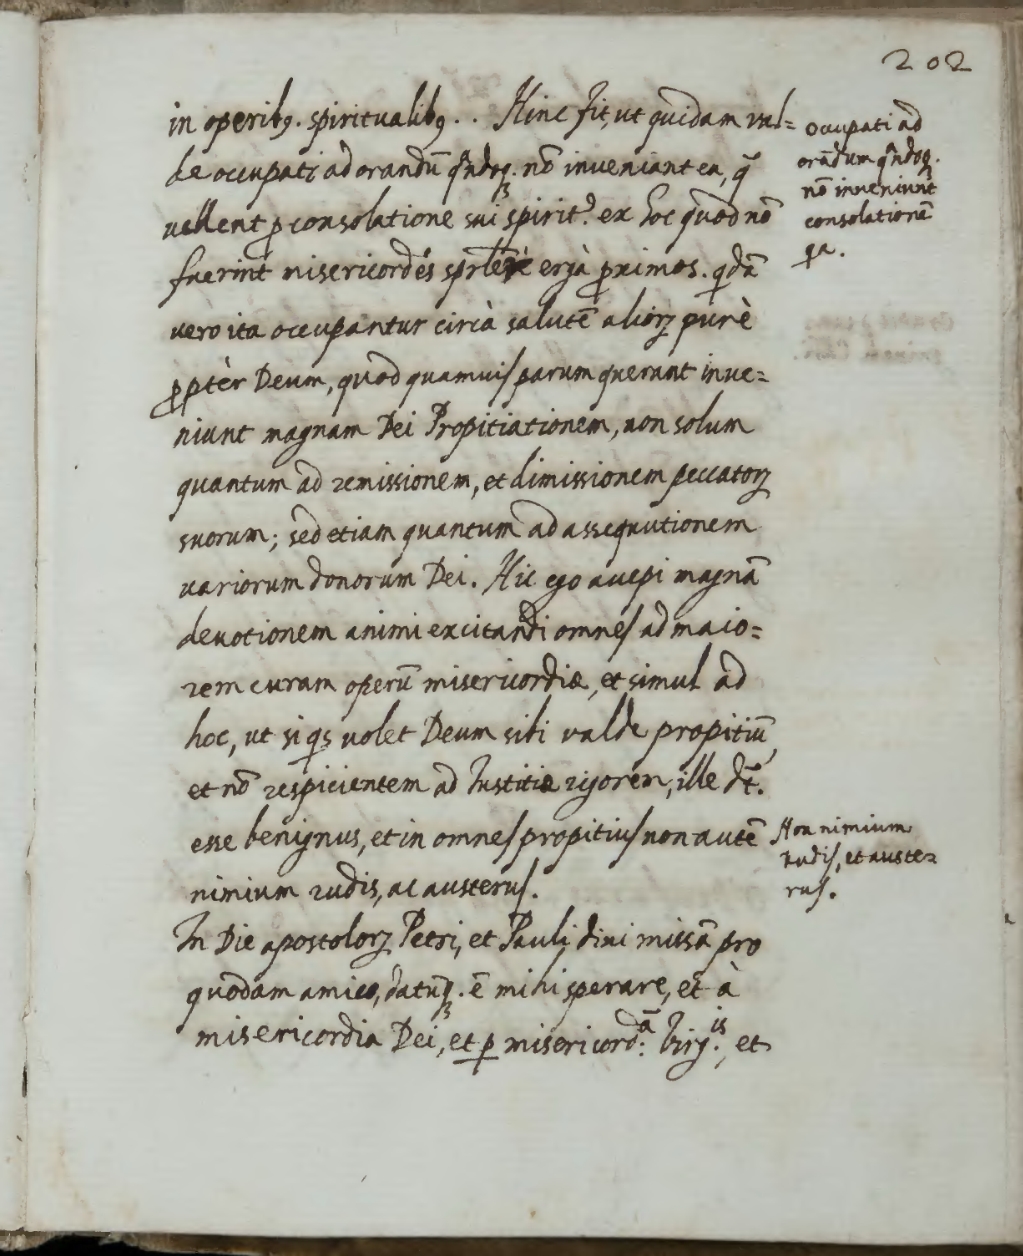 202
in operibꝰ. spiritualibꝰ. . Hinc fit, ut quidam val=
de occupati ad orandū qn̄doqꝫ. nō inveniant ea, q̄
vellent ꝓ consolatione sui spirit.ꝰ ex hoc quod nō
fuerint misericordes sprl̄es ergà ꝓximos. qdā
vero ita occupantur circà salutē alioꝝ purè
ꝓptèr Deum, quod quamvis parum querant inve=
niunt magnam Dei Propitiationem, non solum
quantum ad remissionem, et dimissionem peccatoꝝ
suorum; sed etiam quantum ad assequutionem
variorum donorum Dei. Hic ego accepi magnā
devotionem animi excitandi omnes ad maio=
rem curam operū misericordiæ, et simul ad
hoc, ut si qs volet Deum sibi valde propitiū,
et nō respicientem ad Iustitiæ rigorem, ille dt̄.
esse benignus, et in omnes propitius non autē
nimium rudis, ac austerus.
In Die apostoloꝝ Petri, et Pauli dixi missā pro
quodam amico, datūqꝫ. ē mihi sperare, et à
misericordia Dei, et ꝑ misericord.ā Virg.is, et
occupati ad
orādum qn̄doqꝫ.
nō inveniunt
consolationē
qa.
Non nimium
rudis, et auste=
rus.